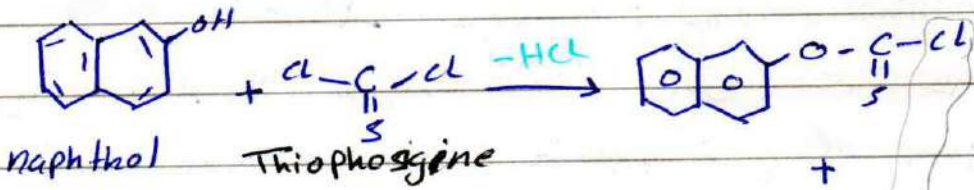 OH
+ Cl-C-Cl -HCl O-C-Cl
S S
naphthol Thiophosgine +